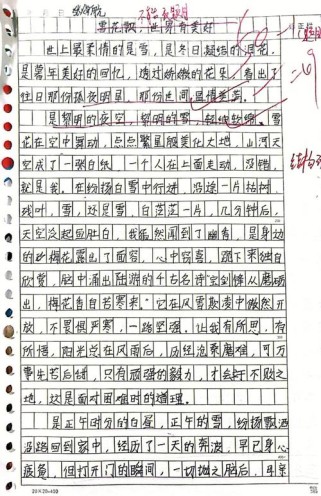 雪花飘，世界有美好
世上最柔情的是雪，是冬日凝结的泪花，
是当年美好的回忆，透过娇嫩的花朵，看出了
往日那份孤夜明星，那份世间温情美景。
是黎明的夜空，黎明的雪，轻续软绵。雪
花在空中舞动，点点繁星般美化大地，山河天
空成了一张白纸，一个人在上面走动，没错，
就是我。在纷扬白雪中行进，沿途一片枯树
残叶，雪，还是雪，白茫茫一片，几分钟后，
天空泛起血肚白，我虽然闻到了幽香，是身边
的梅花露出了面容，心中窃喜，蹲下来独自
欣赏，脑中涌出陆游的千古名诗宝剑锋从磨砺
出，梅花香自苦寒来"它在风雪欺凌中傲然开
放，不畏惧严寒，一路坚强。让我有所思，有
所悟，阳光总在风雨后，历经沧桑磨难，可万
事先苦后甜，只有顽强的毅力，才会于不败之
地，这是面对困难时的道理。
是正午时分的白昼，正午的雪，纷扬飘洒
沿路回到家中，经历了一天的奔波，早已身心
疲惫，但打开门的瞬间，一切抛之脑后，
20×20=400